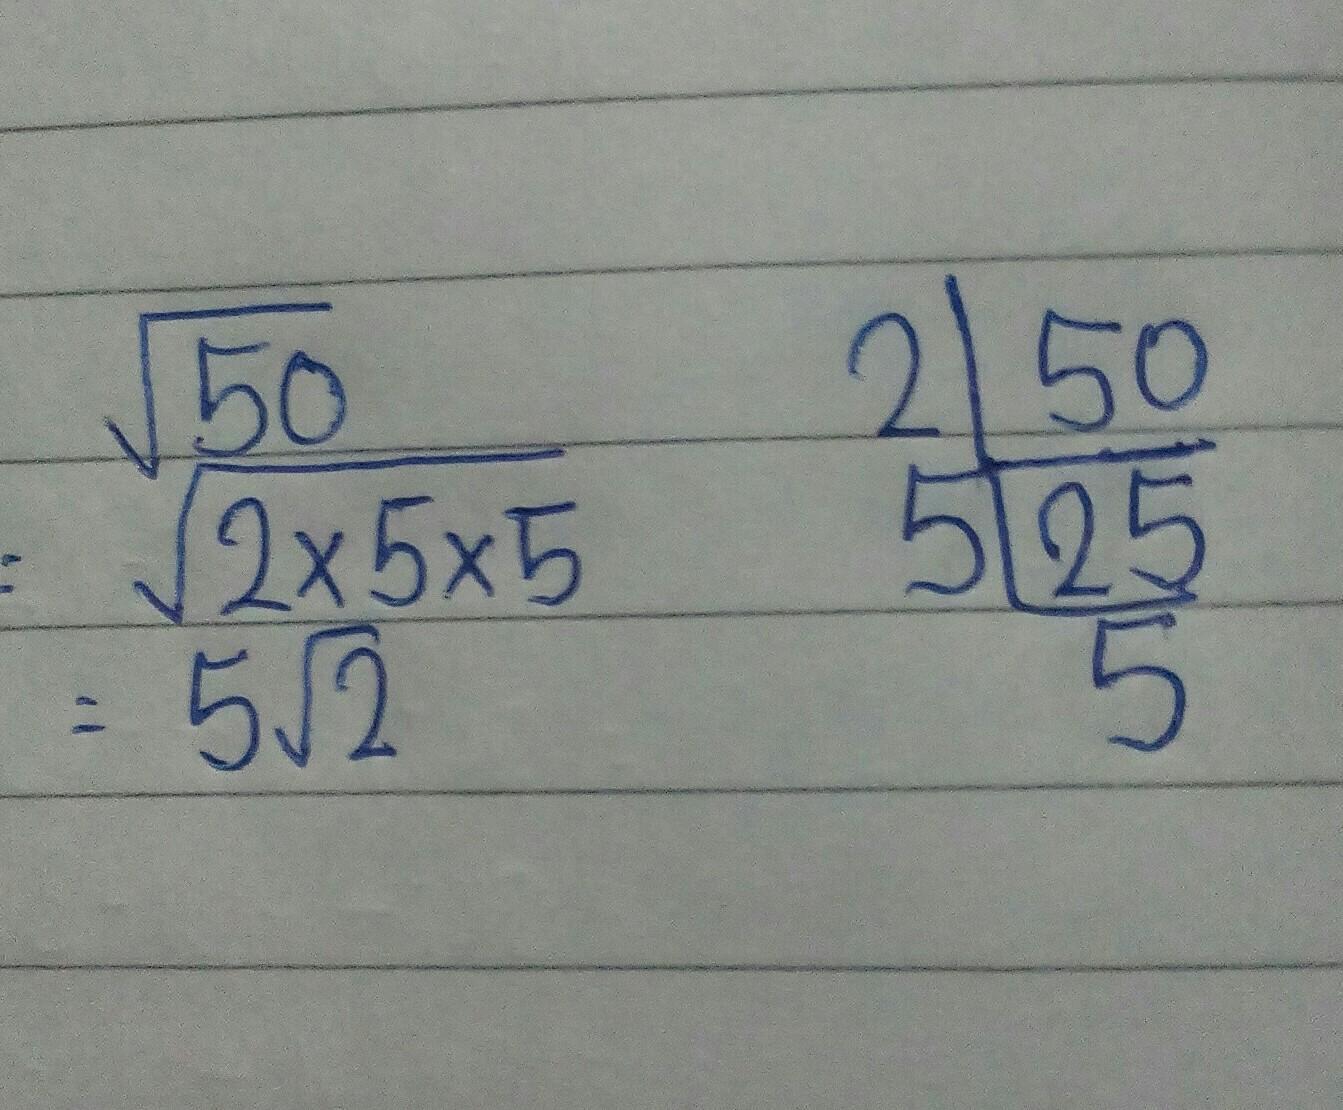 √50
= √2×5×5
= 5√2
2 | 50
5 | 25
5